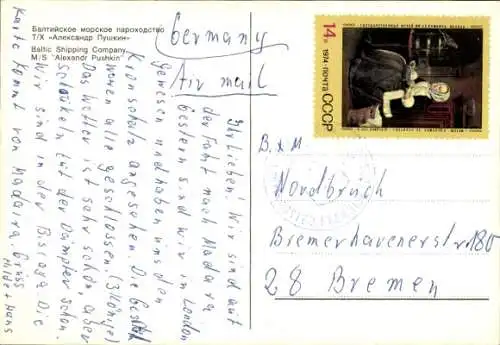 Балтийское морское пароходство
Т/Х «Александр Пушкин»
Baltic Shipping Company
M/S "Alexandr Pushkin"
Germany
Air mail
Ihr Lieben! Wir sind auf
der Fahrt nach Madeira
Gestern sind wir in London
gewesen und haben uns den
angesehen. Die
waren alle geschlossen. (3 Könige)
Das Wetter ist sehr schön, aber
Schaukeln tut der Dampfer schon.
Wir sind in der Biscaya. Die
Karte kommt von Madaira. Gruss
Hilde + Hans
14к
1974 • ПОЧТА
СССР
B. & M
Nordbruch
Bremerhavenerstr 180
28 Bremen